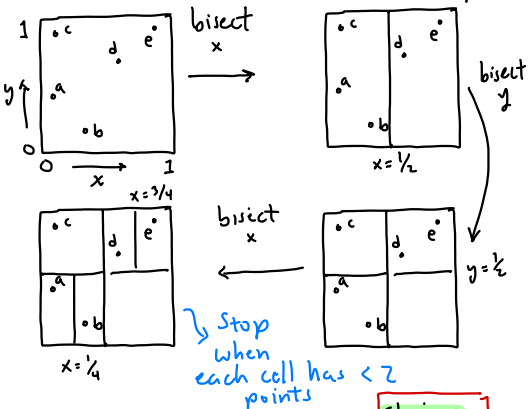 1
c
d
e
a
b
y
0
0
x
1
bisect
x
c
d
e
a
b
x=1/2
bisect
y
x=3/4
c
d
e
a
b
x=1/4
bisect
x
c
d
e
a
b
y=1/2
Stop
when
each cell has < 2
points